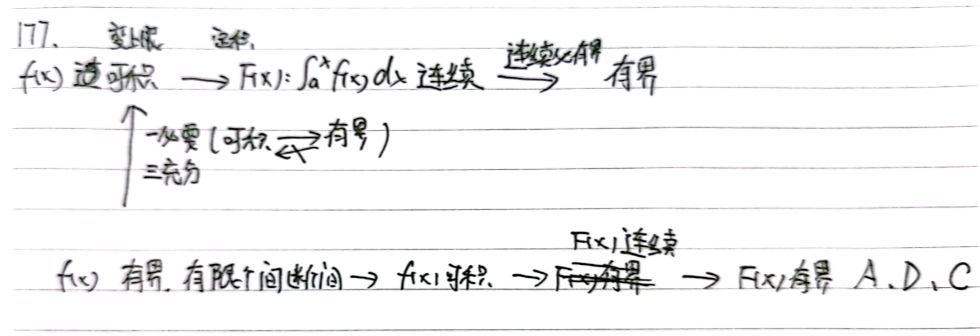 177. 变上限 定积.
f(x) 可积 → F(x): ∫ₐˣ f(x) dx 连续 连续必有界→ 有界
↑ 一必要 (可积 ⇄ 有界)
三充分
F(x)连续
f(x) 有界. 有限个间断 → f(x)可积. → F(x)有界 → F(x)有界 A、D、C